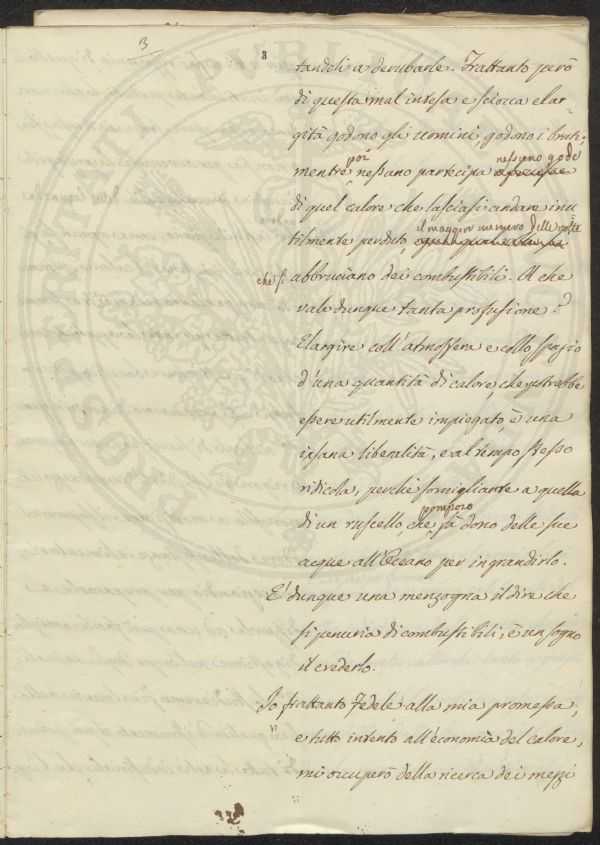 3
3
tandoli a derubarle. Frattanto però
di questa mal intesa e sciocca elar=
gità godono gli uomini, godono i bruti;
poi nessuno gode
mentre nessuno partecipa
di quel calore che lasciasi andare inu=
il maggior numero delle volte
tilmente perduto,
che si abbruciano dei combustibili. A che
vale dunque tanta profusione?
Elargire coll'atmosfera e collo spazio
d'una quantità di calore, che potrebbe
essere utilmente impiegato, è una
insana liberalità, e al tempo stesso
ridicola, perché somigliante a quella
pomposo
di un ruscello, che fà dono delle sue
acque all'Oceano per ingrandirlo.
E' dunque una menzogna il dire che
si penuria di combustibili, è un sogno
il crederlo.
Io frattanto fedele alla mia promessa,
e tutto intento all'economia del calore,
mi occuperò della ricerca dei mezzi